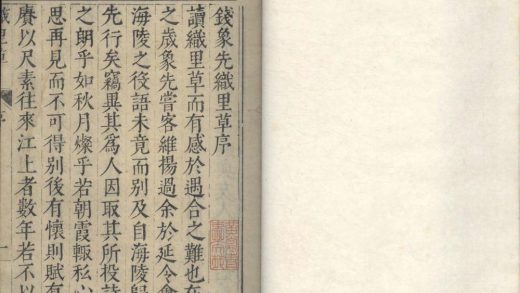 錢象先織里草序
讀織里草而有感於遇合之難也在
之歲象先嘗客維揚過余於延令會
海陵之役語未竟而別及自海陵歸
先行矣竊異其為人因取其所投詩
之朗乎如秋月燦乎若朝霞輙私心
思再見而不可得別後有懷則賦有
賡以尺素往來江上者數年若不以
織里草
序
一